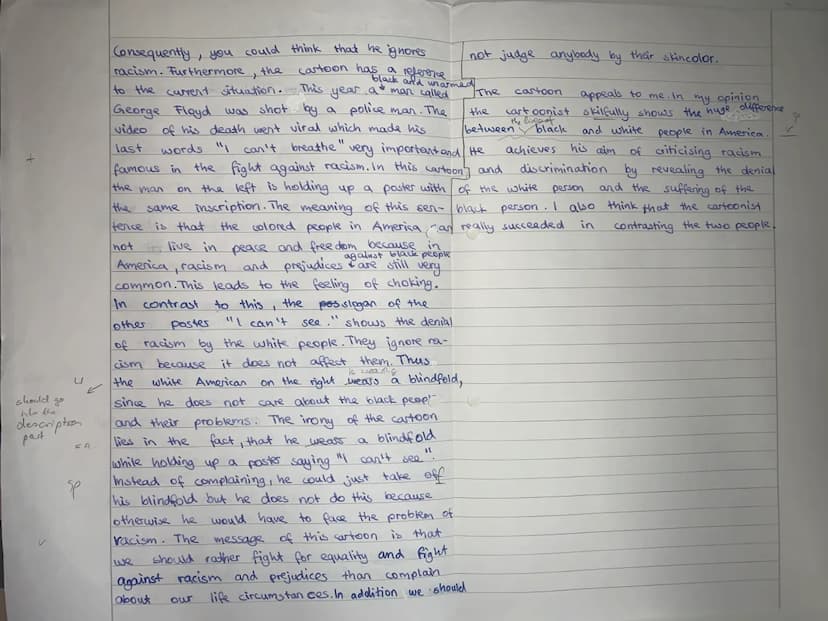 Consequently, you could think that he ignores
racism. Furthermore, the cartoon has a reference
to the current situation. This year a black and unarmed man called
George Floyd was shot by a police man. The
video of his death went viral which made his
last words "I can't breathe" very important and
famous in the fight against racism. In this cartoon,
the man on the left is holding up a poster with
the same inscription. The meaning of this sen-
tence is that the colored people in America can
not live in peace and freedom because in
America, racism and prejudices against black people are still very
common. This leads to the feeling of choking.
In contrast to this, the slogan of the
other poster "I can't see." shows the denial
of racism by the white people. They ignore ra-
cism because it does not affect them. Thus
the white American on the right wears a blindfold,
is wearing
since he does not care about the black peopl
and their problems. The irony of the cartoon
lies in the fact, that he wears a blindfold
while holding up a poster saying "I can't see".
Instead of complaining, he could just take off
his blindfold but he does not do this because
otherwise he would have to face the problem of
racism. The message of this cartoon is that
we should rather fight for equality and fight
against racism and prejudices than complain
about our life circumstances. In addition we should
should go
into the
description
part
sp
not judge anybody by their skincolor.
The cartoon appeals to me. In my opinion
the cartoonist skilfully shows the huge difference
between black and white people in America.
He achieves his aim of criticising racism
and discrimination by revealing the denial
of the white person and the suffering of the
black person. I also think that the cartoonist
really succeeded in contrasting the two people.